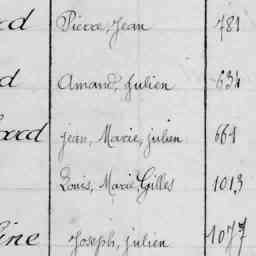 Pierre, Jean 781
Amand, Julien 634
Jean, Marie, Julien 661
Louis, Marie, Gilles 1013
ine Joseph, Julien 1077